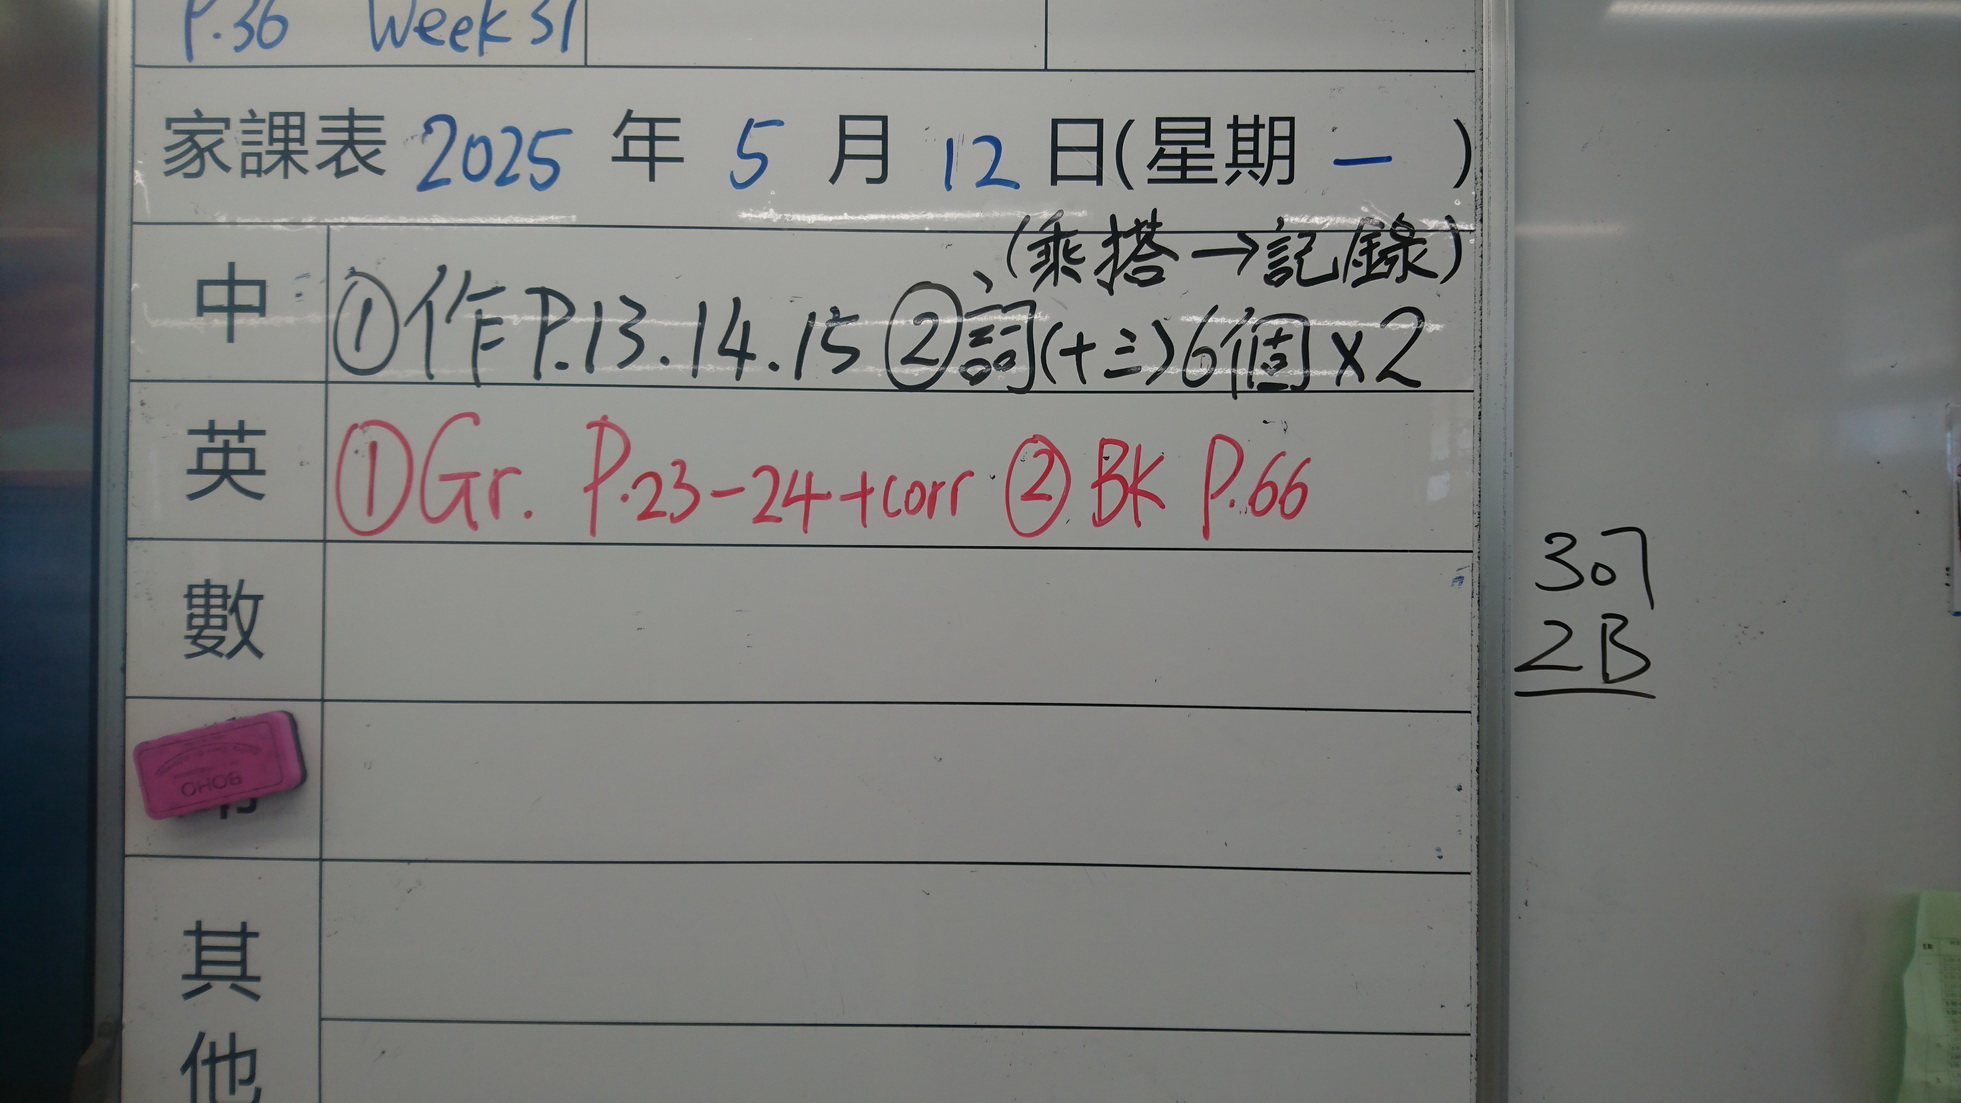 P.36 Week 31
家課表 2025 年 5 月 12 日(星期 一 )
(乘搭→記錄)
中 ①作P.13.14.15 ②詞(十三)6個x2
英 ①Gr. P.23-24+corr ② BK P.66
數
其他
307
2B